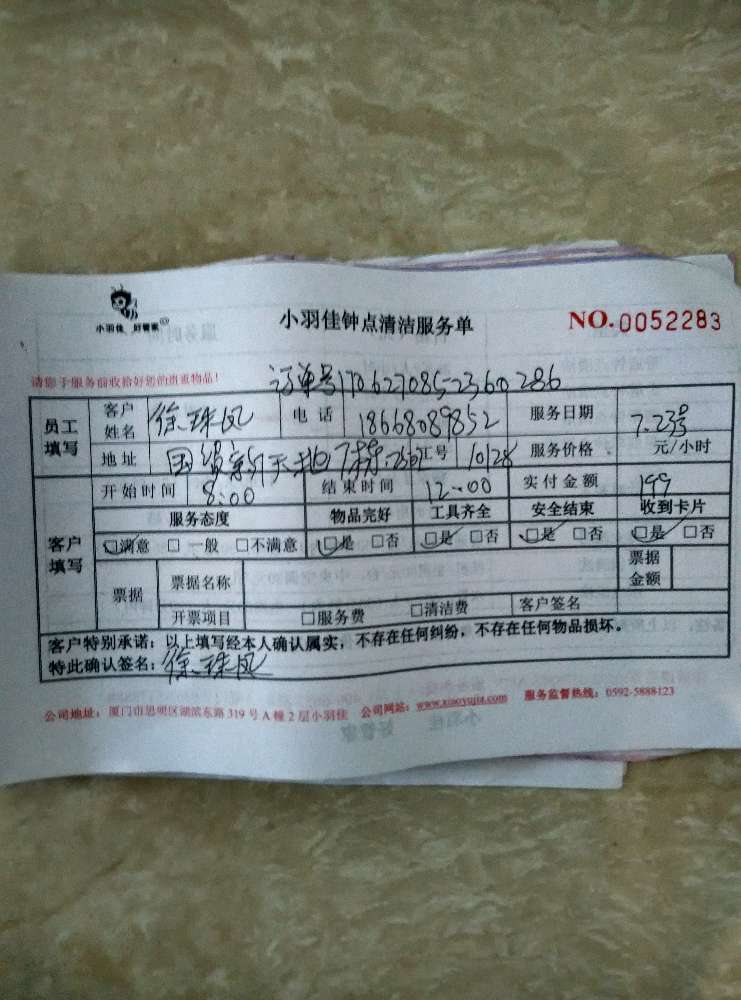 小羽佳 好管家
小羽佳钟点清洁服务单 NO.0052283
请您于服务前收拾好您的贵重物品！
订单号1706270852360286
员工填写 客户姓名 徐珠凤 电话 18668089852 服务日期 7.23号
地址 国贸新天地7栋 工号 10128 服务价格 元/小时
客户填写 开始时间 8:00 结束时间 12:00 实付金额 199
服务态度 物品完好 工具齐全 安全结束 收到卡片
□满意 □一般 □不满意 □是 □否 □是 □否 □是 □否 □是 □否
票据 票据名称 票据金额
开票项目 □服务费 □清洁费 客户签名
客户特别承诺：以上填写经本人确认属实，不存在任何纠纷，不存在任何物品损坏。
特此确认签名：徐珠凤
公司地址：厦门市思明区湖滨东路319号A幢2层小羽佳 公司网站：www.xiaoyujia.com 服务监督热线：0592-5888123